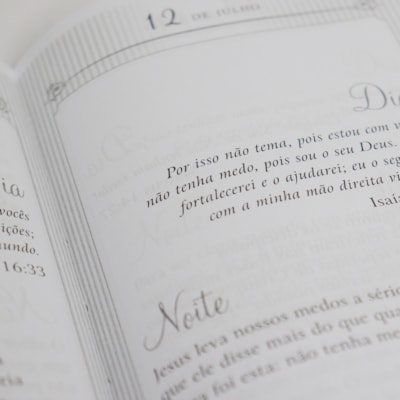 12 DE JULHO
ia
vocês
ições;
undo.
16:33
ria
Dia
Por isso não tema, pois estou com v
não tenha medo, pois sou o seu Deus.
fortalecerei e o ajudarei; eu o seg
com a minha mão direita vi
Isaí
Noite
Jesus leva nossos medos a séri
que ele disse mais do que qua
a foi esta: não tenha me